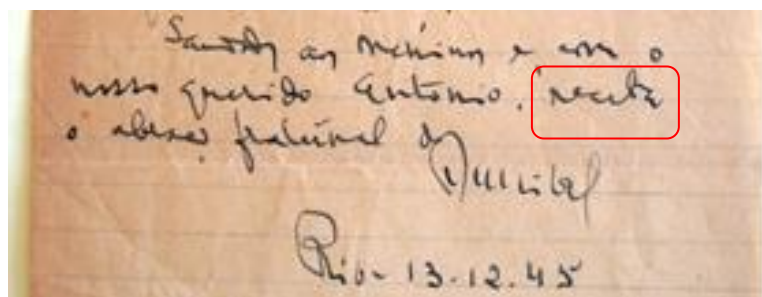 Saudades aos meninos e com o
nosso querido Antonio, receba
o abraço fraternal do
Rio - 13.12.45